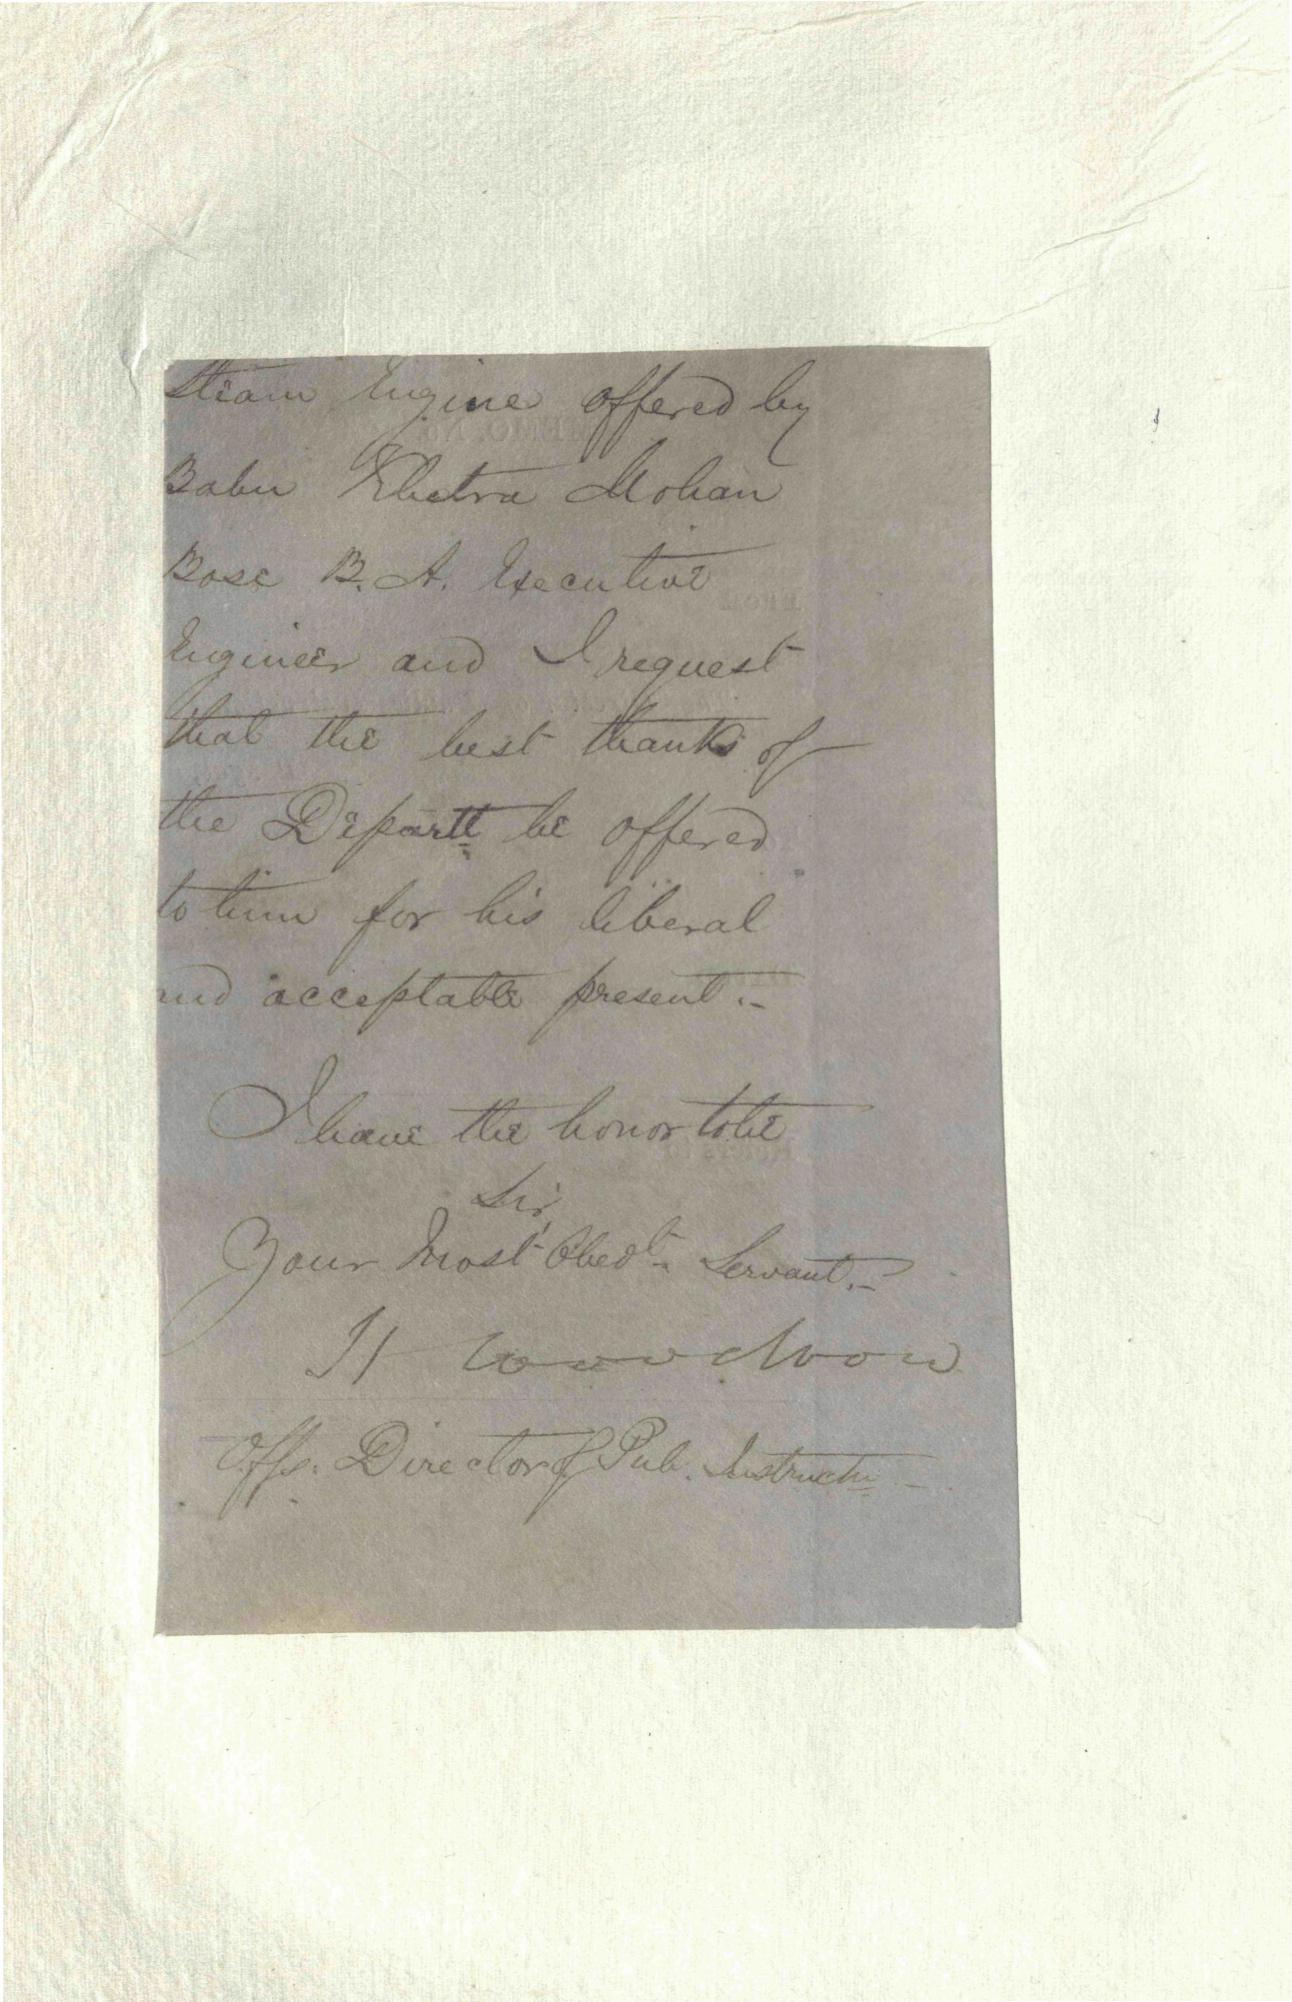 Steam Engine offered by
Babu Khetra Mohan
Bose B. A. Executive
Engineer and I request
that the best thanks of
the Departt be offered
to him for his liberal
and acceptable present.-
I have the honor to be
Sir,
Your Most Obedt. Servant.-
H Woodrow
Offg. Director of Pub. Instructn